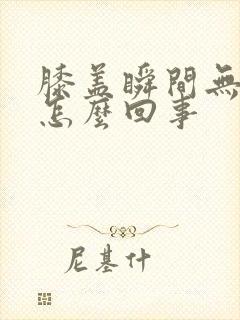 膝盖瞬間無
怎麼回事
尼基什